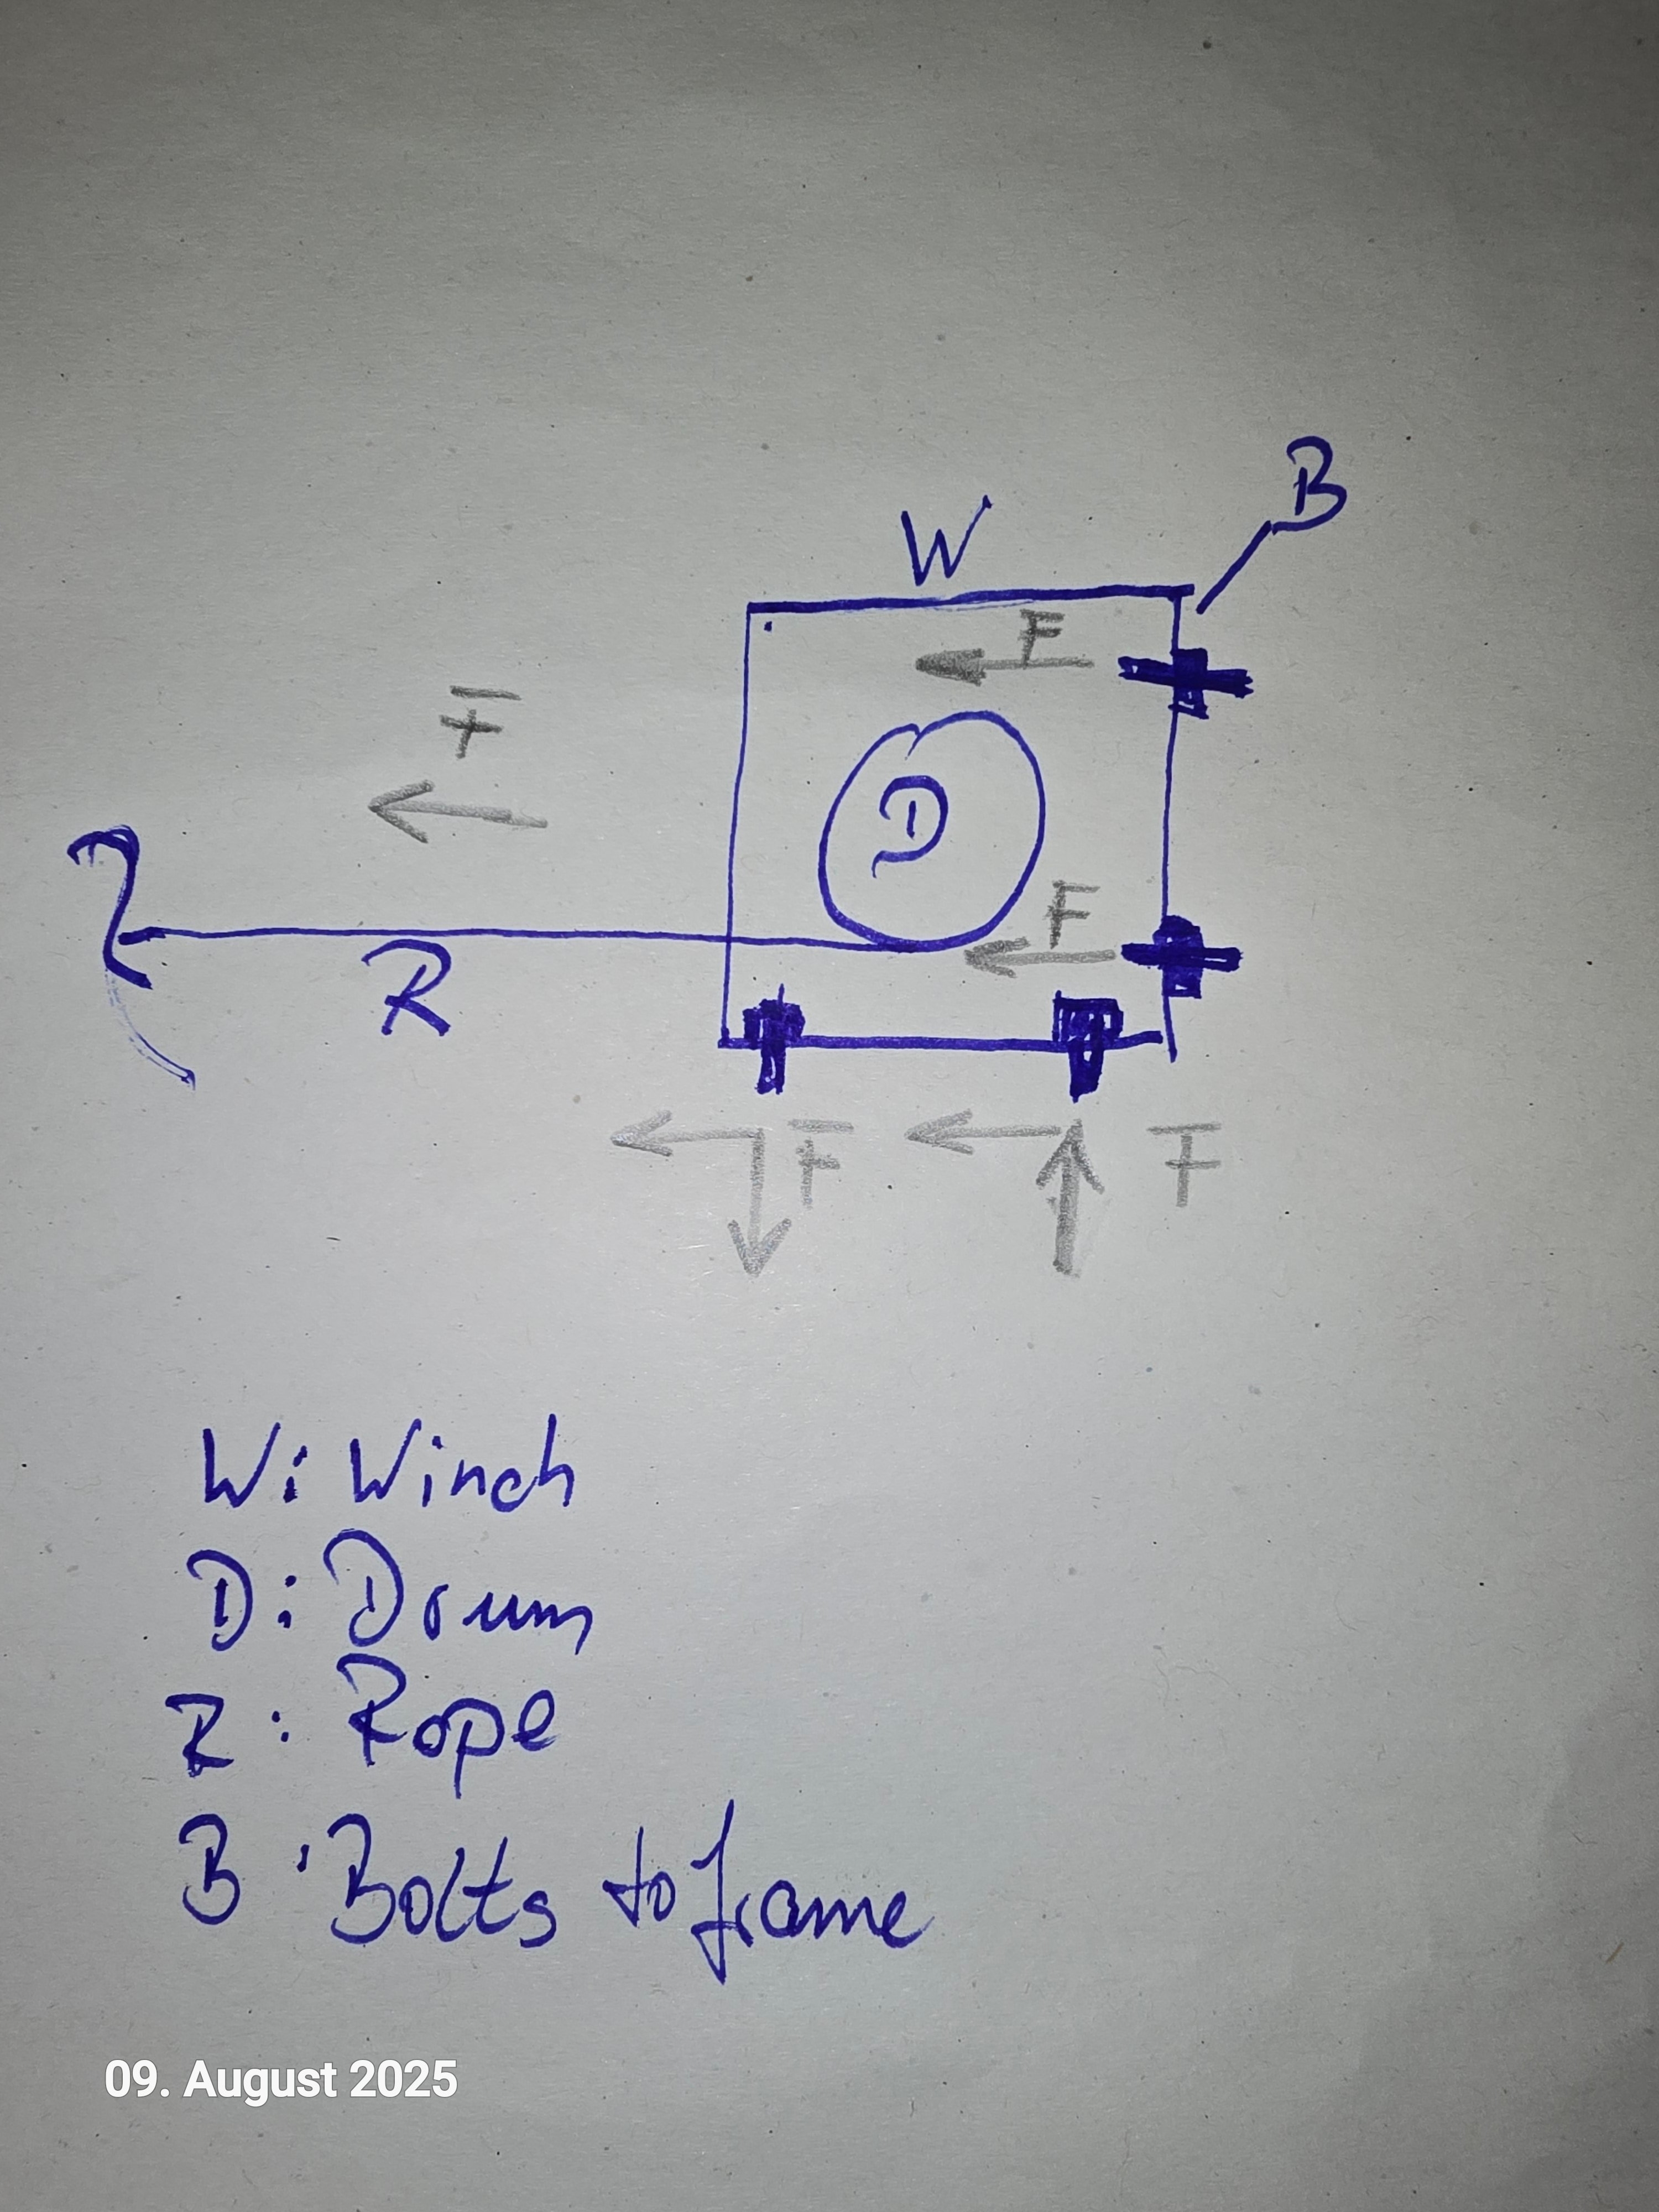 B
W
F
F
D
F
R
F
F
W: Winch
D: Drum
R: Rope
B: Bolts to frame
09. August 2025